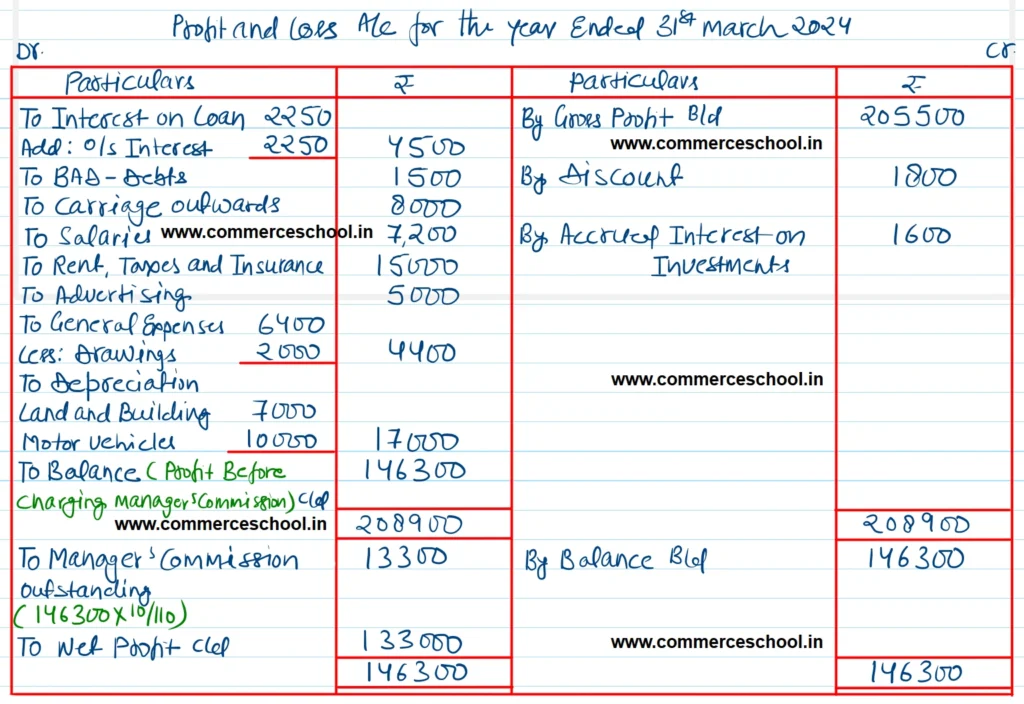 Profit and Loss A/c for the year Ended 31st March 2024
Dr. Cr.
Particulars ₹ Particulars ₹
To Interest on Loan 2250 By Gross Profit B/d 205500
Add: O/s Interest 2250 4500 www.commerceschool.in
To BAD-Debts 1500 By Discount 1800
To Carriage outwards 8000
To Salaries www.commerceschool.in 7,200 By Accrued Interest on 1600
To Rent, Taxes and Insurance 15000 Investments
To Advertising 5000
To General Expenses 6400
Less: Drawings 2000 4400
To Depreciation www.commerceschool.in
Land and Building 7000
Motor Vehicles 10000 17000
To Balance (Profit Before 146300
Charging Manager's Commission) c/d
www.commerceschool.in 208900 208900
To Manager's Commission 13300 By Balance B/d 146300
outstanding
(146300×10/110)
To Net Profit c/d 133000 www.commerceschool.in
146300 146300